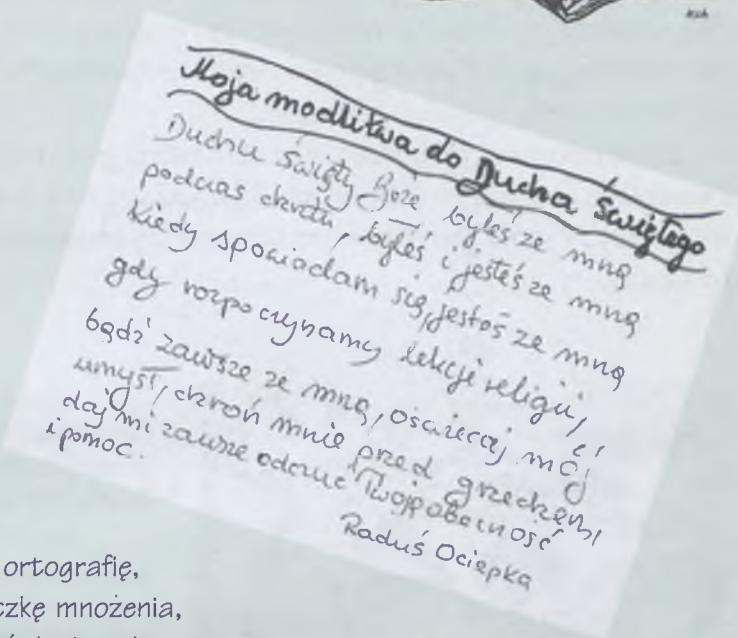 Moja modlitwa do Ducha Świętego
Duchu Święty Boże, byłeś ze mną
podczas chrztu, byłeś i jesteś ze mną
kiedy spowiadam się, jesteś ze mną
gdy rozpoczynamy lekcje religii,
bądź zawsze ze mną, oświecaj mój
umysł, chroń mnie przed grzechem,
daj mi zawsze odczuć Twoją obecność
i pomoc.
Raduś Ociepka
ortografię,
czkę mnożenia,